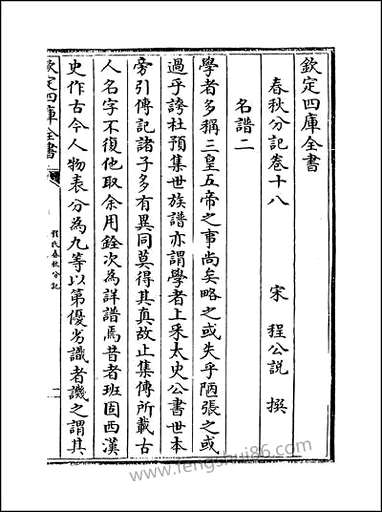 欽定四庫全書
春秋分記卷十八
宋 程公說 撰
名譜二
學者多稱三皇五帝之事尚矣略之或失乎陋張之或
過乎誇杜預集世族譜亦謂學者上采太史公書世本
旁引傳記諸子多有異同莫得其真故止集傳所載古
人名字不復他取余用銓次為詳譜焉昔者班固西漢
史作古今人物表分為九等以第優劣識者譏之謂其
欽定四庫全書
程氏春秋分記
一
www.fengshui86.com